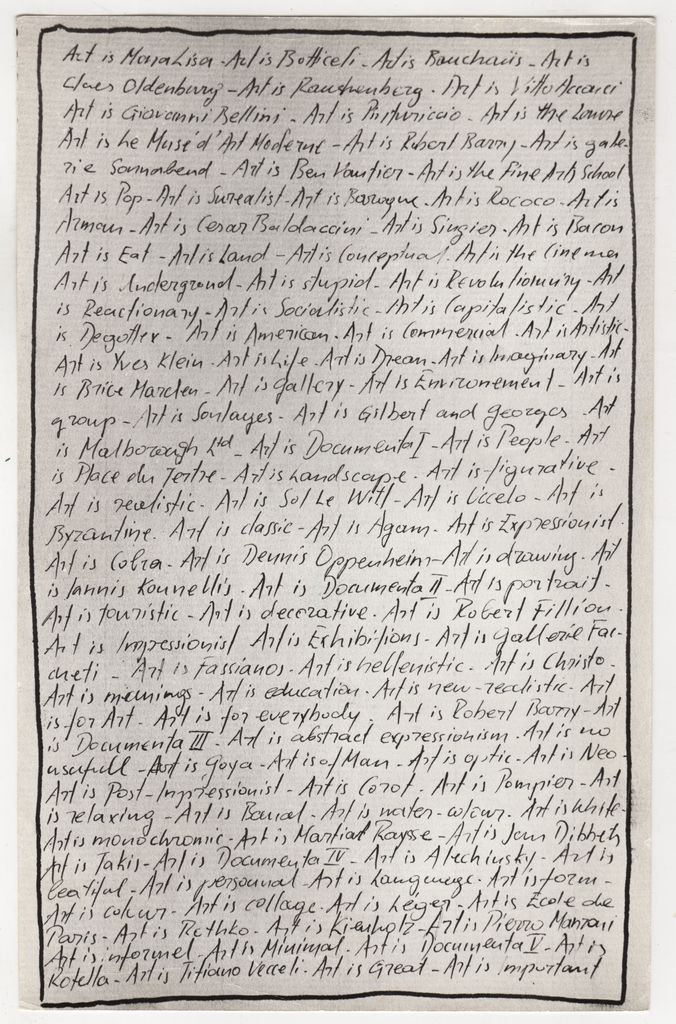 Art is Mona Lisa - Art is Botticeli - Art is Bauchaüs - Art is
Claes Oldenburg - Art is Raushenberg - Art is Vitto Acconci
Art is Giovanni Bellini - Art is Pinturiccio - Art is the Louvre
Art is Le Musé d'Art Moderne - Art is Robert Barry - Art is gale-
rie Sonnabend - Art is Ben Vautier - Art is the Fine Arts School
Art is Pop - Art is Surealist - Art is Baroque - Art is Rococo - Art is
Arman - Art is Cesar Baldaccini - Art is Singier - Art is Bacon
Art is Eat - Art is Land - Art is Conceptual - Art is the Cinema
Art is Underground - Art is stupid - Art is Revolutionnary - Art
is Reactionary - Art is Socialistic - Art is Capitalistic - Art
is Degottex - Art is American - Art is Commercial - Art is Artistic -
Art is Yves Klein - Art is Life - Art is Dream - Art is Imaginary - Art
is Brice Marden - Art is gallery - Art is Environement - Art is
group - Art is Soulages - Art is Gilbert and georges - Art
is Malborough Ltd - Art is Documenta I - Art is People - Art
is Place du Tertre - Art is Landscape - Art is figurative -
Art is realistic - Art is Sol Le Witt - Art is Uccelo - Art is
Byzantine - Art is classic - Art is Agam - Art is Expressionist -
Art is Cobra - Art is Dennis Oppenheim - Art is drawing - Art
is Iannis Kounnellis - Art is Documenta II - Art is portrait -
Art is touristic - Art is decorative - Art is Robert Fillion -
Art is Impressionist Art is Exhibitions - Art is Gallerie Fac-
cheti - Art is Fassianos - Art is hellenistic - Art is Christo -
Art is meanings - Art is education - Art is new-realistic - Art
is for Art - Art is for everybody - Art is Robert Barry - Art
is Documenta III - Art is abstract expressionism - Art is no
usufull - Art is Goya - Art is of Man - Art is optic - Art is Neo -
Art is Post-Impressionist - Art is Corot - Art is Pompier - Art
is relaxing - Art is Banal - Art is water-colour - Art is White -
Art is monochromic - Art is Martial Raysse - Art is Jan Dibbets
Art is Takis - Art is Documenta IV - Art is Alechinsky - Art is
beatiful - Art is personnal - Art is Language - Art is form -
Art is colour - Art is collage - Art is Léger - Art is Ecole de
Paris - Art is Rothko - Art is Kienholz - Art is Pierro Manzoni
Art is informel - Art is Minimal - Art is Documenta V - Art is
Rotella - Art is Titiano Vecceli - Art is Great - Art is Important